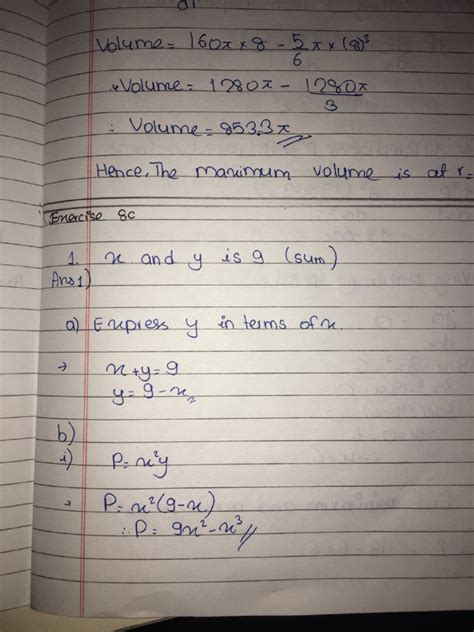 Volume = 160π × 8 - 5/6 π × (8)³
∴ Volume = 1280π - 1280π/3
∴ Volume = 853.3π
Hence, The maximum volume is at r=
Exercise 8C
1. x and y is 9 (sum)
Ans 1)
a) Express y in terms of x.
→ x + y = 9
y = 9 - x
b)
i) P = x²y
→ P = x²(9 - x)
∴ P = 9x² - x³